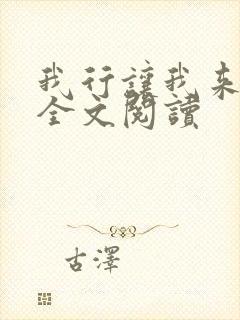 我行讓我來
全文閱讀
古澤